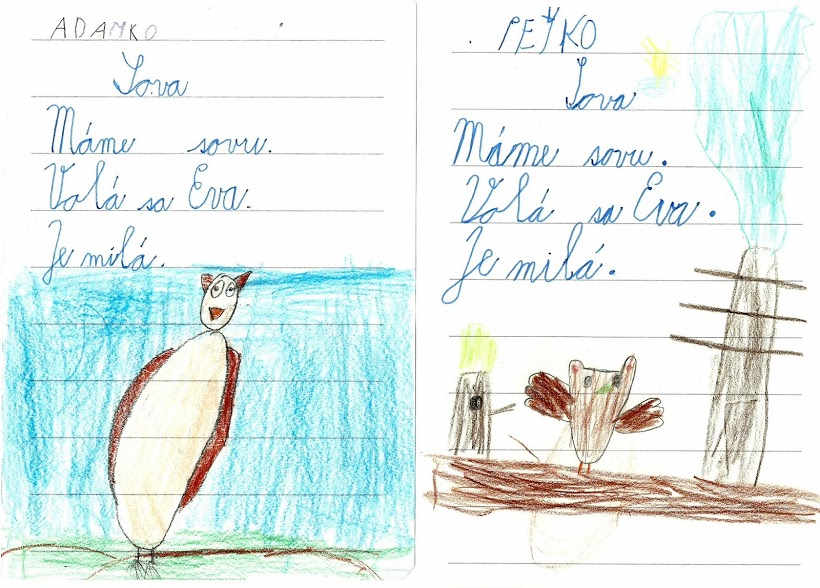 ADAMKO
Sova
Máme sovu.
Volá sa Eva.
Je milá.
PEŤKO
Sova
Máme sovu.
Volá sa Eva.
Je milá.